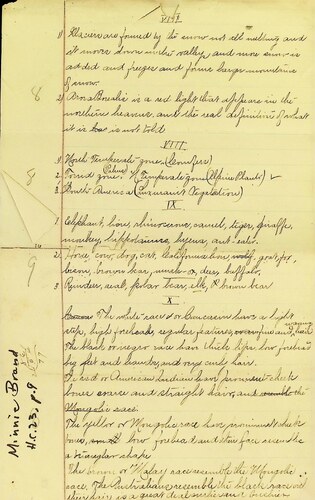 VII
1) Glaciers are formed by the snow not all melting and
it moves down in the valley, and more snow is
added and freezes and forms large mountains
of snow.
8
2) Arora Borealis is a red light that appears in the
northern heavens, and the real definition of what
it is has is not told
VIII
1) North Temperate zone (Conifers)
2) Torrid zone. Palms Temperate zone (Alpine Plants)
8
3) South America (Luxuriant Vegetation)
IX
1. Elephant, lion, rhinocerous, camel, tiger, giraffe,
monkey, hippotamus, hyena, ant-eater.
10
2. Horse, cow, dog, cat, California lion, wolf, goat, fox,
9
bison, brown bear, deer, buffalo.
3. Reindeer, seal, polar bear, elk, brown bear
X
The white race or Caucasian have a light
skin, high forehead, regular features, and hair
The black or negro race have thick lips low forehead
big feet and hands, and very curly hair.
The red or American Indians have prominent cheek
bones and straight hair, and
Mongolic race
The yellow or Mongolic race have prominent cheek
bones, low forehead and the face resemble
a triangular shape
The brown or Malay race resemble the Mongolic
race. The Australians resemble the black race
their hair is a great
Minnie Brand
H.C. 23, p. 9